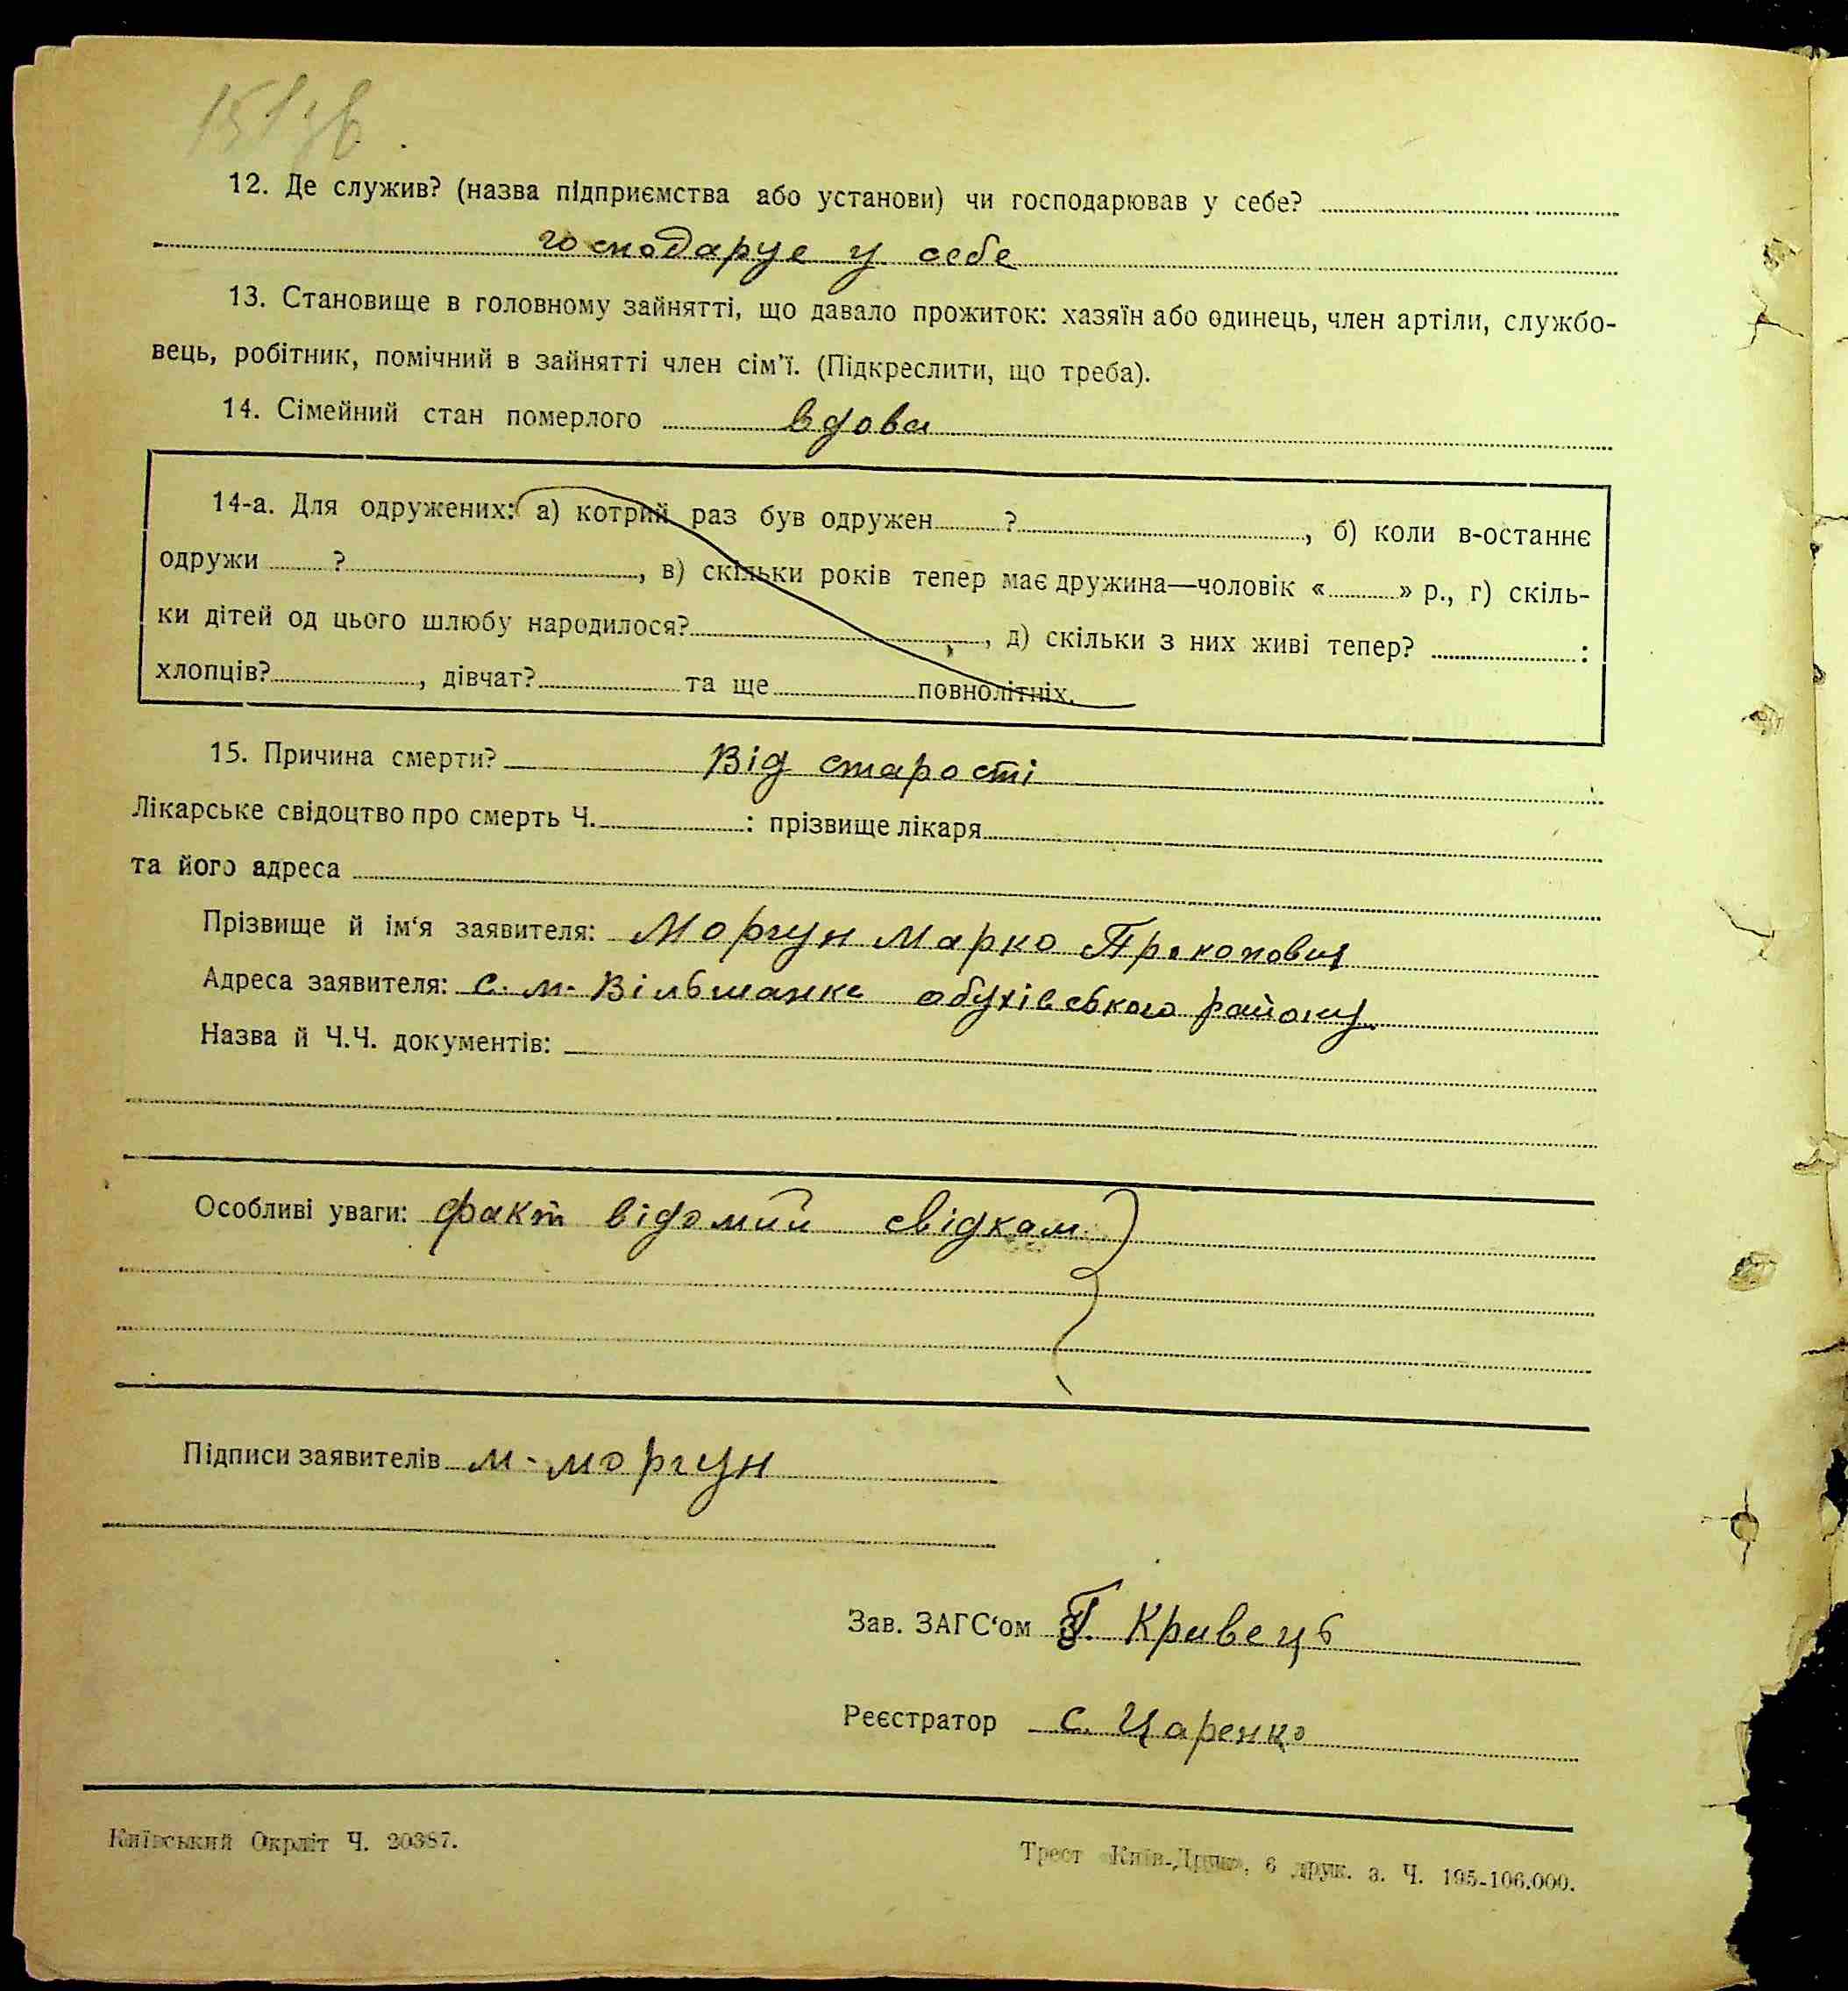 151 зв.
12. Де служив? (назва підприємства або установи) чи господарював у себе?
господарує у себе
13. Становище в головному зайнятті, що давало прожиток: хазяїн або одинець, член артіли, службо-
вець, робітник, помічний в зайнятті член сім'ї. (Підкреслити, що треба).
14. Сімейний стан померлого вдова
14-а. Для одружених: а) котрий раз був одружен ? , б) коли в-останнє
одружи ? , в) скільки років тепер має дружина—чоловік « » р., г) скіль-
ки дітей од цього шлюбу народилося? , д) скільки з них живі тепер? :
хлопців? , дівчат? та ще повнолітніх.
15. Причина смерти? Від старості
Лікарське свідоцтво про смерть Ч. : прізвище лікаря
та його адреса
Прізвище й ім'я заявителя: Моргун Марко Прокопович
Адреса заявителя: с. м. Вільшанка обухівського району
Назва й Ч.Ч. документів:
Особливі уваги: факт відомий свідкам
Підписи заявителів м. моргун
Зав. ЗАГС'ом Кривець
Реєстратор с. Царенко
Київський Окрліт Ч. 20387.
Трест «Київ-Друк», 6 друк. з. Ч. 195-106.000.